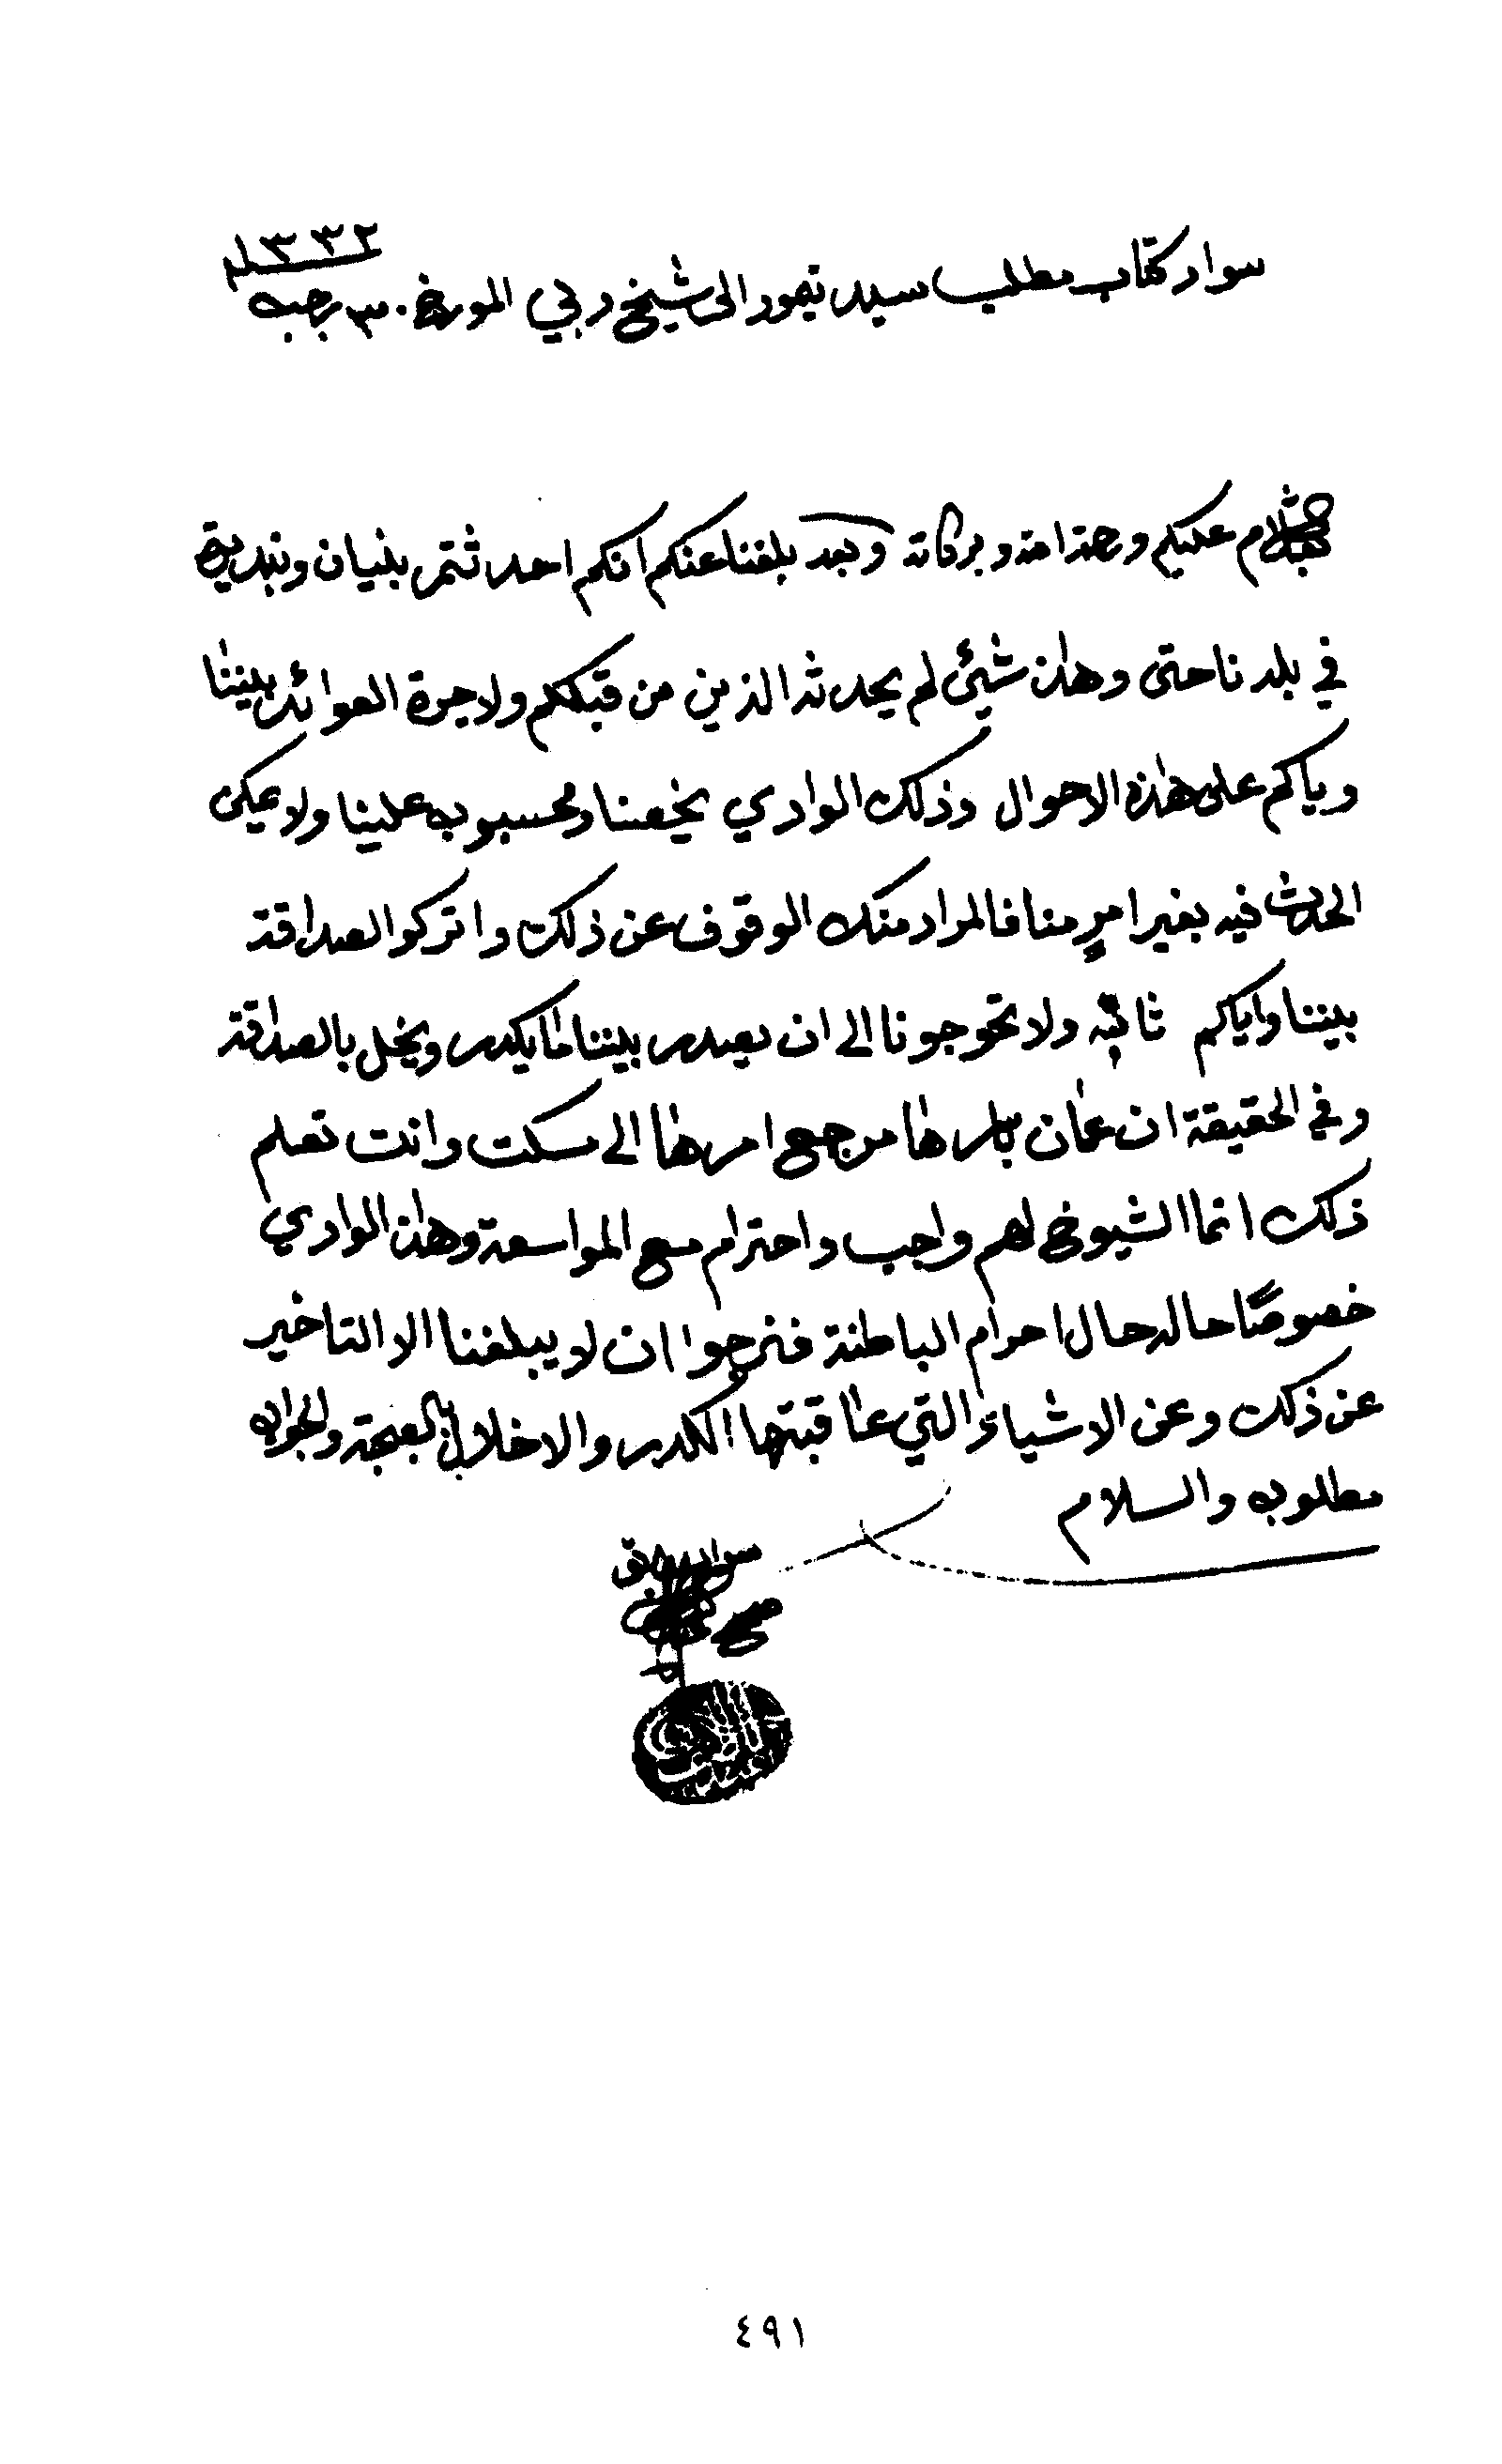 سواد كتاب مطلب سيد تيمور الى شيخ دبي المورخ ٣٠ رجب ١٣٣٢
السلام عليكم ورحمة الله وبركاته وبعد بلغنا عنكم انكم احدثتم بنيان وبنديرة
في بلدنا حتى وهذا شيئ لم يحدثه الذين من قبلكم ولا جرة العوائد بيننا
وياكم على هذه الاحوال وذلك الوادي يخصنا ومحسوب علينا ولا يمكن
الحدث فيه بغير امرٍ منا فالمراد منك الوقوف عن ذلك واتركوا الصداقة
بيننا واياكم ثابته ولا تحوجونا الى ان يصدر بيننا ما يكدر ويخل بالصداقة
وفي الحقيقة ان عمان باسرها مرجع امرها الى مسكت وانت تعلم
ذلك انما الشيوخ لهم واجب واحترام مع المواسعة وهذا الوادي
خصوصًا حاله حال احرام الباطنة فنرجوا ان لا يبلغنا الا التاخير
عن ذلك وعن الاشياء التي عاقبتها الكدر والاخلال بالصحبة والجواب
مطلوب والسلام
سواد مطابق
صحيح
٤٩١